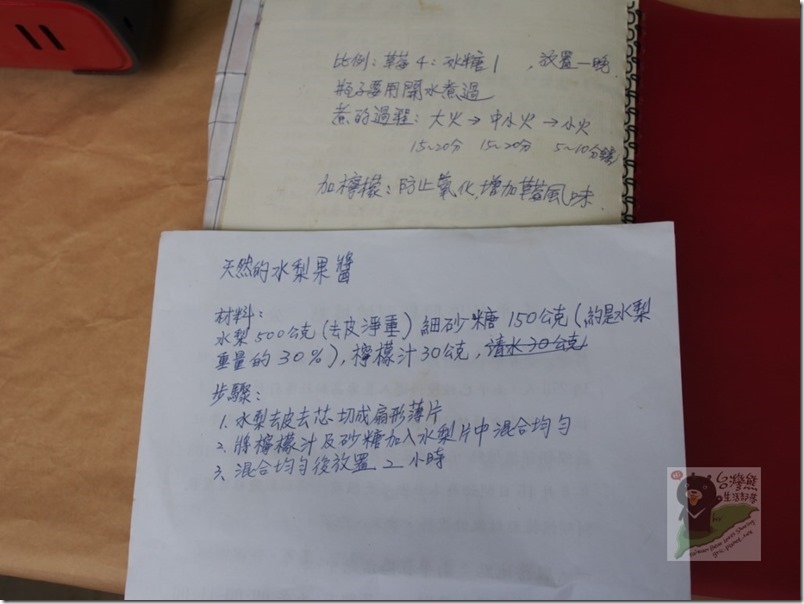 比例：草莓4：冰糖1 ，放置一晚.
瓶子要用開水煮過
煮的過程：大火→中小火→小火
15~20分 15~20分 5~10分鐘)
加檸檬：防止氧化,增加草莓風味.
天然的水梨果醬
材料：
水梨500公克(去皮淨重) 細砂糖150公克(約是水梨
重量的30%)，檸檬汁30公克，清水30公克
步驟：
1. 水梨去皮去芯切成扇形薄片
2. 將檸檬汁及砂糖加入水梨片中混合均勻
3、混合均勻後放置2小時
台灣熊
生活部落